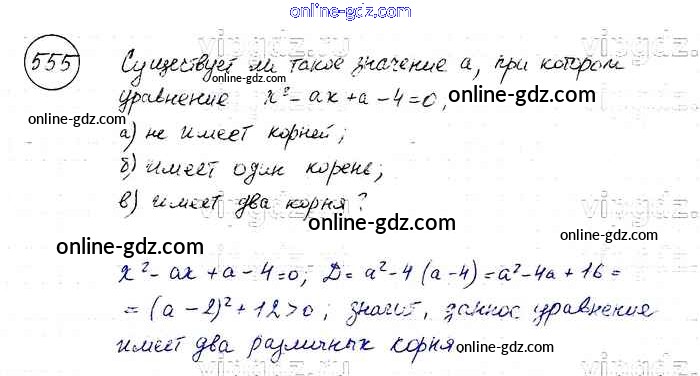 online-gdz.com
555 Существует ли такое значение а, при котором
online-gdz.com
уравнение x² - ax + a - 4 = 0, online-gdz.com
а) не имеет корней; online-gdz.com
б) имеет один корень;
в) имеет два корня?
vipgdz.
online-gdz.com
online-gdz.com
x² - ax + a - 4 = 0; D = a² - 4 (a - 4) = a² - 4a + 16 =
= (a - 2)² + 12 > 0; значит, данное уравнение
имеет два различных корня online-gdz.com